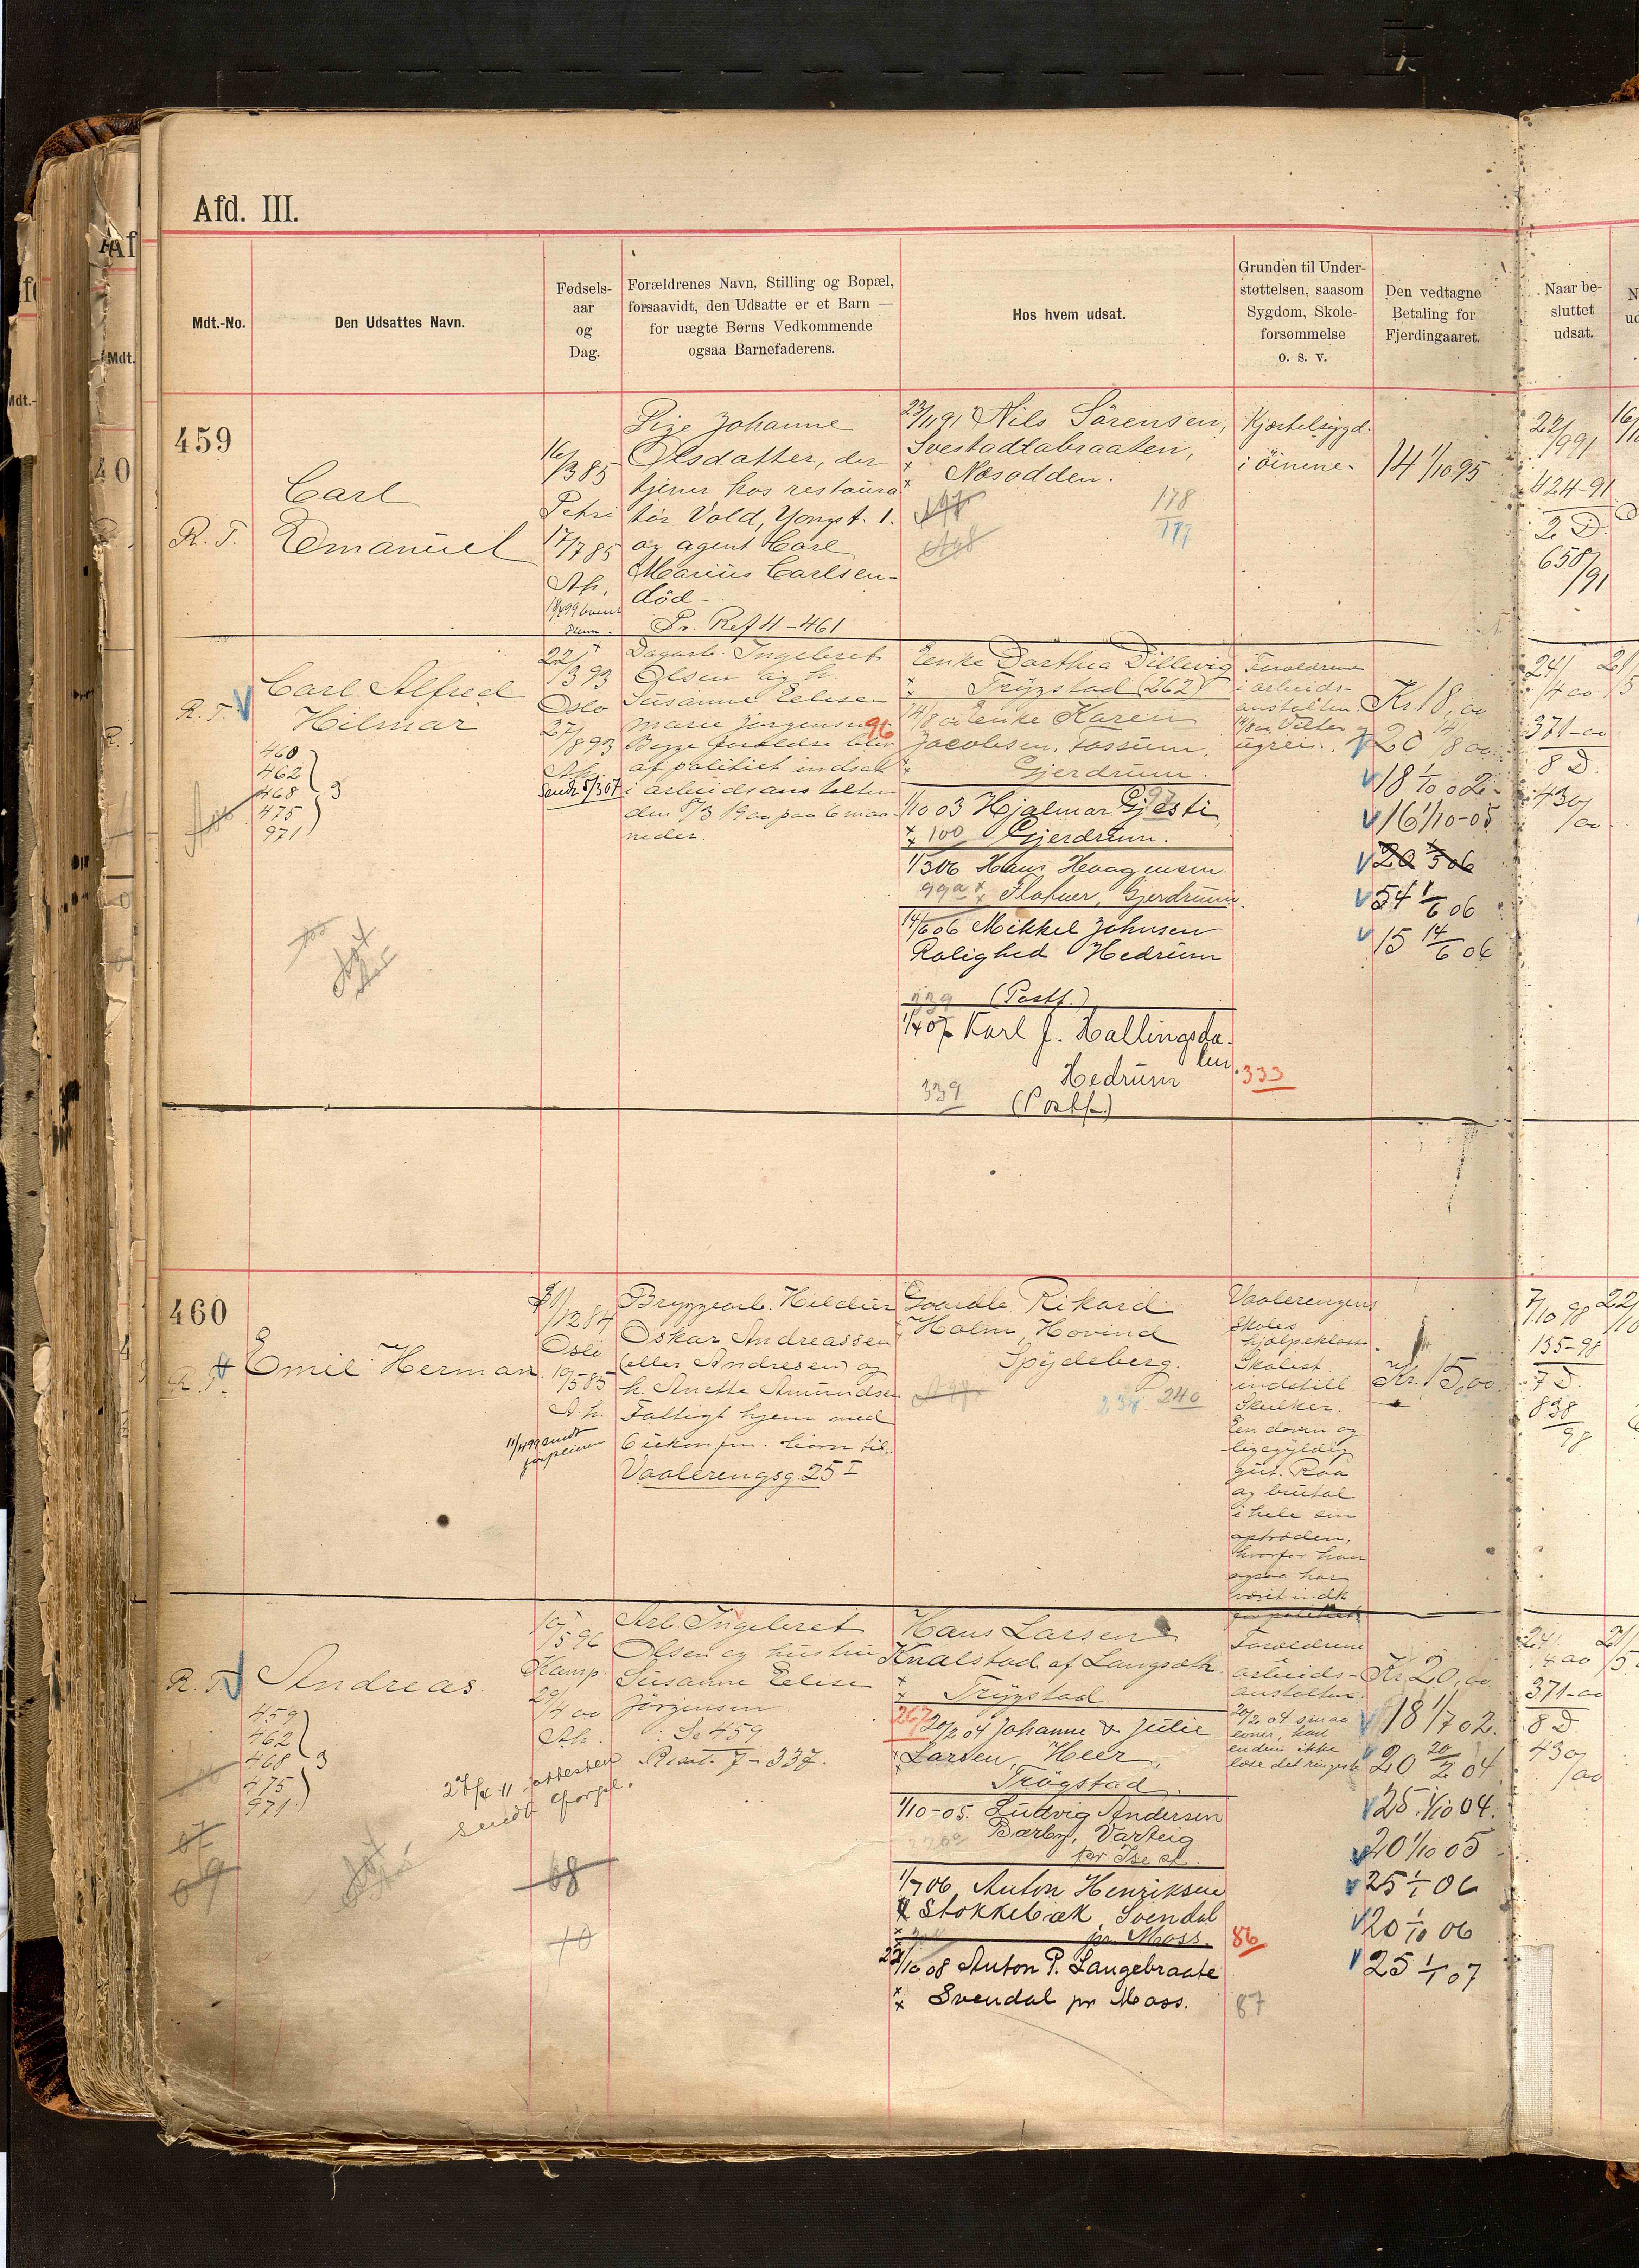 Afd. III.
Mdt.-No.
Den Udsattes Navn.
Fødsels-
aar
og
Dag.
Forældrenes Navn, Stilling og Bopæl,
forsaavidt, den Udsatte er et Barn —
for uægte Børns Vedkommende
ogsaa Barnefaderens.
Hos hvem udsat.
Grunden til Under-
støttelsen, saasom
Sygdom, Skole-
forsømmelse
o. s. v.
Den vedtagne
Betaling for
Fjerdingaaret.
Naar be-
sluttet
udsat.
459
R. T.
Carl
Emanuel
16/3 85
Petri
17/7 85
Ah.
Pige Johanne
Olsdatter, der
tjener hos restaura
tør Vold, Yongst. 1.
og agent Carl
Marius Carlsen -
død -
Pr. Ref 4 - 461
23/11 91 Nils Sørensen,
Svestadtabraaten,
Næsodden.
178
177
Kjertelsygd.
i øinene.
14 1/10 95
22/9 91
424-91
2 D.
658/91
R. T.
Carl Alfred
Hilmar
460
462
468
475
971
3
22/3 93
Oslo
27/8 93
Ah.
Sendt 5/3 07
Dagarb. Ingebret
Olsen og h.
Susanne Eelise
Marie Jørgensen
Begge forældre blev
af politiet indsat
i arbeidsanstalten
den 5/3 1900 paa 6 maa-
neder.
96
Enke Dorthea Dillevig
Trygstad (262)
14/8 00 Enke Karen
Jacobsen, Fossum,
Gjerdrum.
1/10 03 Hjalmar Gjesti
100 Gjerdrum.
1/3 06 Hans Haagensen
99a Flatner, Gjerdrum.
14/6 06 Mikkel Johnsen
Rolighed Hedrum
339 (Postf.)
1/4 07 Karl J. Hallingsda-
len.
Hedrum
339 (Postf.)
333
Forældrene
i arbeids-
anstalten.
Kr. 18,00
20 14/8 00.
18 1/10 02.
16 1/10-05
20 1/3 06
54 1/6 06
15 14/6 06
24/4 00
371-00
8 D.
430/00
460
R. T.
Emil Herman
11/12 84
Oslo
19/5 85
A. h.
11/4 99 sendt
forpleieren
Bryggearb. Hildeur
Oskar Andreassen
(eller Andresen) og
h. Anette Amundsen
Fattigt hjem med
6 ukonfm. børn til.
Vaalerengsg. 25 I
Gaardbr. Rikard
Holm, Hovind
Spydeberg.
240
Vaalerengens
skoles
hjælpeklasse.
Skolest
indstill.
Skulker.
En doven og
ligegyldig
gut. Raa
og brutal
i hele sin
optræden,
hvorfor han
ogsaa har
været indk
for politiet
Kr. 15,00.
7/10 98
135-98
7 D.
838/98
R. T.
Andreas
459
462
468
475
971
3
10/5 96
Kamp.
29/4 00
Ah.
Arb. Ingebret
Olsen og hustru
Susanne Eelise
Jørgensen
Se 459
Rml. 7 - 337.
27/4 11 attesten
sendt forpl.
68
10
67
69
Hans Larsen
Knalstad af Langsæth
Trygstad
267
20/2 04 Johanne & Julie
Larsen, Heer,
Trøgstad.
1/10-05. Ludvig Andersen
Bærby, Varteig
pr Ise st.
1/7 06, Anton Henriksen
Stokkebæk, Svendal
pr. Moss.
86
27/10 08 Anton P. Langebraate
Svendal pr Moss.
87
Forældrene
arbeids-
anstalten.
20/2 04 smaa
evner, kan
endnu ikke
læse det ringeste
Kr. 20,00
18 1/7 02.
20 20/2 04
25 1/10 04.
20 1/10 05
25 1/1 06
20 1/10 06
25 1/1 07
24/4 00
371-00
8 D.
430/00